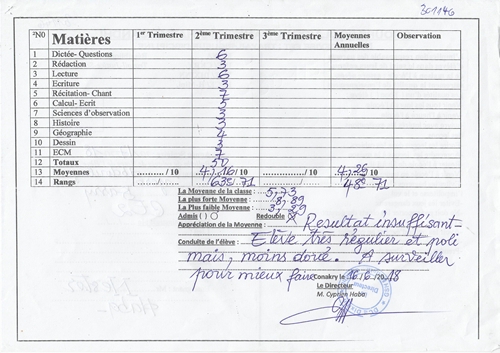 301146
N0 Matières 1er Trimestre 2ème Trimestre 3ème Trimestre Moyennes Annuelles Observation
1 Dictée- Questions 6
2 Rédaction 3
3 Lecture 6
4 Ecriture 3
5 Récitation- Chant 7
6 Calcul- Ecrit 5
7 Sciences d'observation 3
8 Histoire 3
9 Géographie 4
10 Dessin 3
11 ECM 7
12 Totaux 50
13 Moyennes ........./ 10 4,16/ 10 ........./ 10 4,29/10
14 Rangs 63è 71 48è 71
La Moyenne de la classe : 5,73
La plus forte Moyenne : 8,89
La Plus faible Moyenne : 3,29
Admis ( ) Redouble
Appréciation de la Moyenne : Resultat insuffisant
Conduite de l'élève : Elève très régulier et poli
mais, moins doué. A surveiller
pour mieux faire
Conakry le 16/6/2018
Le Directeur
M. Cyprien Haba